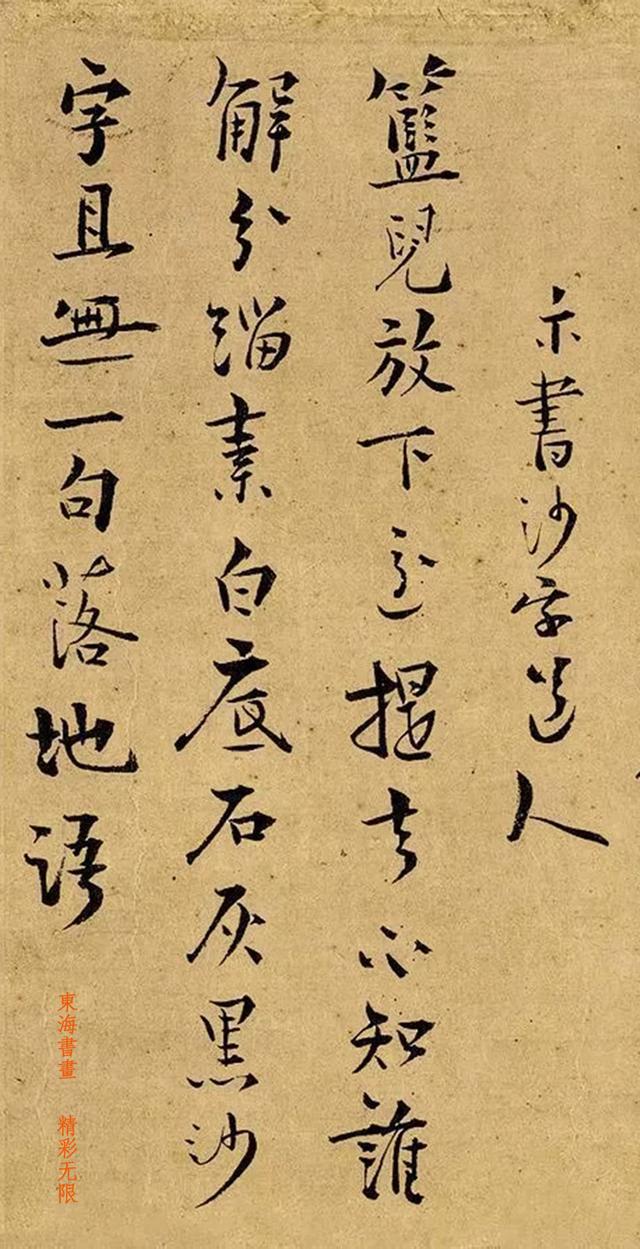 示書沙字道人
籃兒放下還提去不知誰
解分緇素白底石灰黑沙
字且無一句落地語
東海書畫 精彩无限